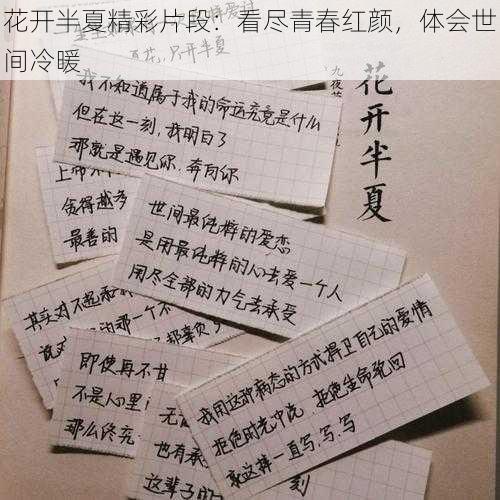 花开半夏精彩片段：看尽青春红颜，体会世
间冷暖
花开半夏
九夜茴
只开半夏
我不知道属于我的命运究竟是什么
但在这一刻，我明白了
那就是遇见你，奔向你
上帝
贪得越多
最善的
世间最纯粹的爱恋
是用最纯粹的心去爱一个人
用尽全部的力气去承受
其实对不起和
说
的那一个不
了那辜负了
即使再不甘
不是心里
那么终究
无
也有
这辈子的
刻
我用这种病态的方式捍卫自己的爱情
拒绝时光冲洗 拒绝生命轮回
就这样一直写.写.写